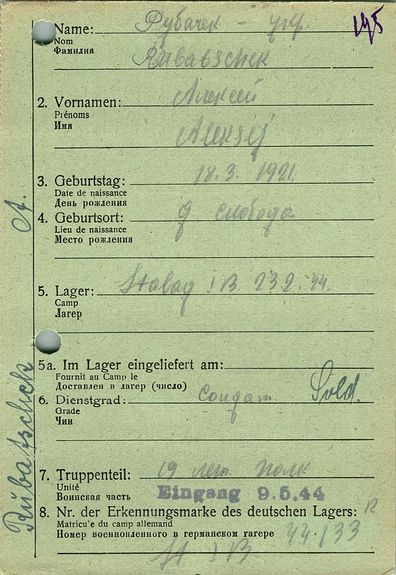 Name: Рубачек -
Nom
Фамилия Rubatschek
2. Vornamen: Алексей
Prénoms
Имя Aleksej
3. Geburtstag: 18.3.1921.
Date de naissance
День рождения
4. Geburtsort: д слобода
Lieu de naissance
Место рождения
5. Lager: Stalag I B 23 2. 44.
Camp
Лагер
5a. Im Lager eingeliefert am:
Fournit au Camp le
Доставлен в лагер (число)
6. Dienstgrad: Солдат Sold.
Grade
Чин
7. Truppenteil: 19 полк
Unité
Воинская часть Eingang 9.5.44
8. Nr. der Erkennungsmarke des deutschen Lagers:
Matricu'e du camp allemand
Номер военнопленного в германском лагере 44133
I B
Rubatschek A.